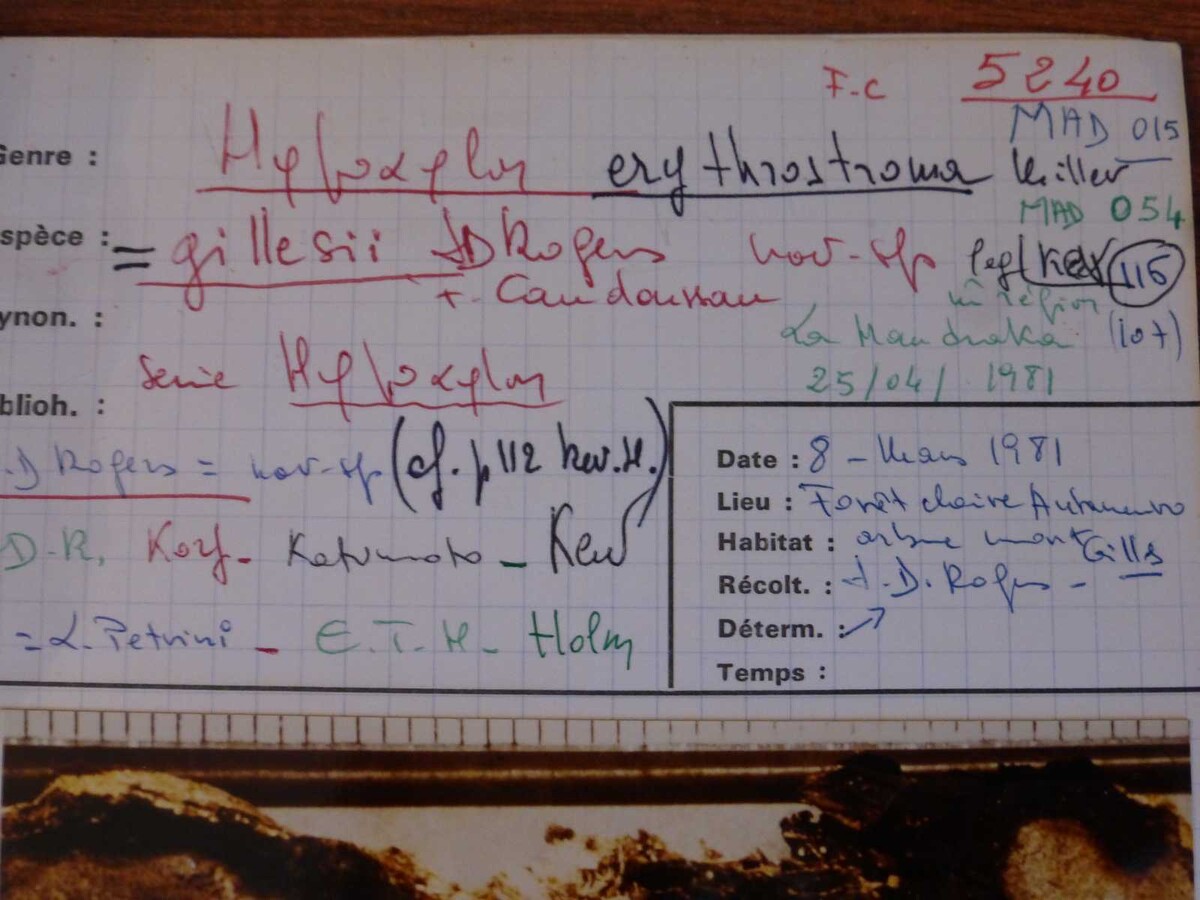 F.C 5240
MAD 015
Genre : Hypoxylon erythrostroma Miller
MAD 054
spèce : = gillesii JD Rogers nov-sp leg/ 116
+ Candoussau
ynon. :
La Mandraka (107)
25/04/ 1981
serie Hypoxylon
blioh. :
.D Rogers = nov-sp (cf. p 112 Rev. M.)
D.R. Korf - Katumoto - Kew
= L. Petrini - E.T.H - Holm
Date : 8 - Mars 1981
Lieu : Forêt claire
Habitat : arbre mort Gilles
Récolt. : J.D. Rogers -
Déterm. :
Temps :